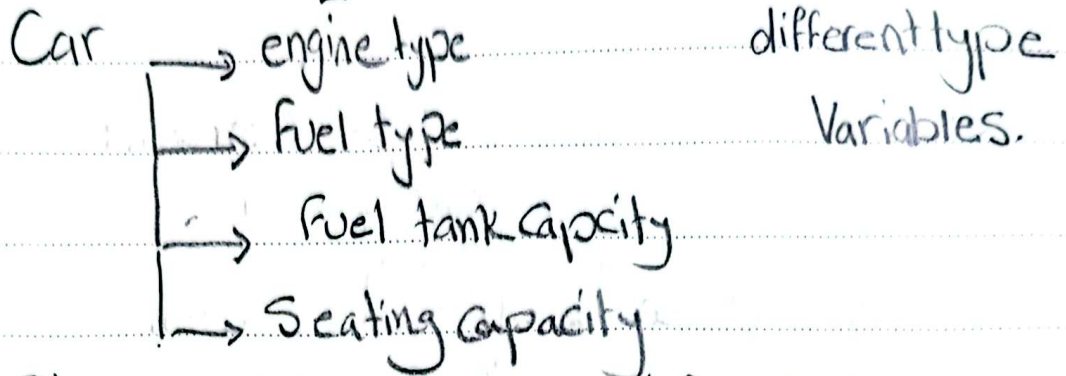 Car → engine type different type
→ fuel type Variables.
→ fuel tank Capcity
→ Seating capacity